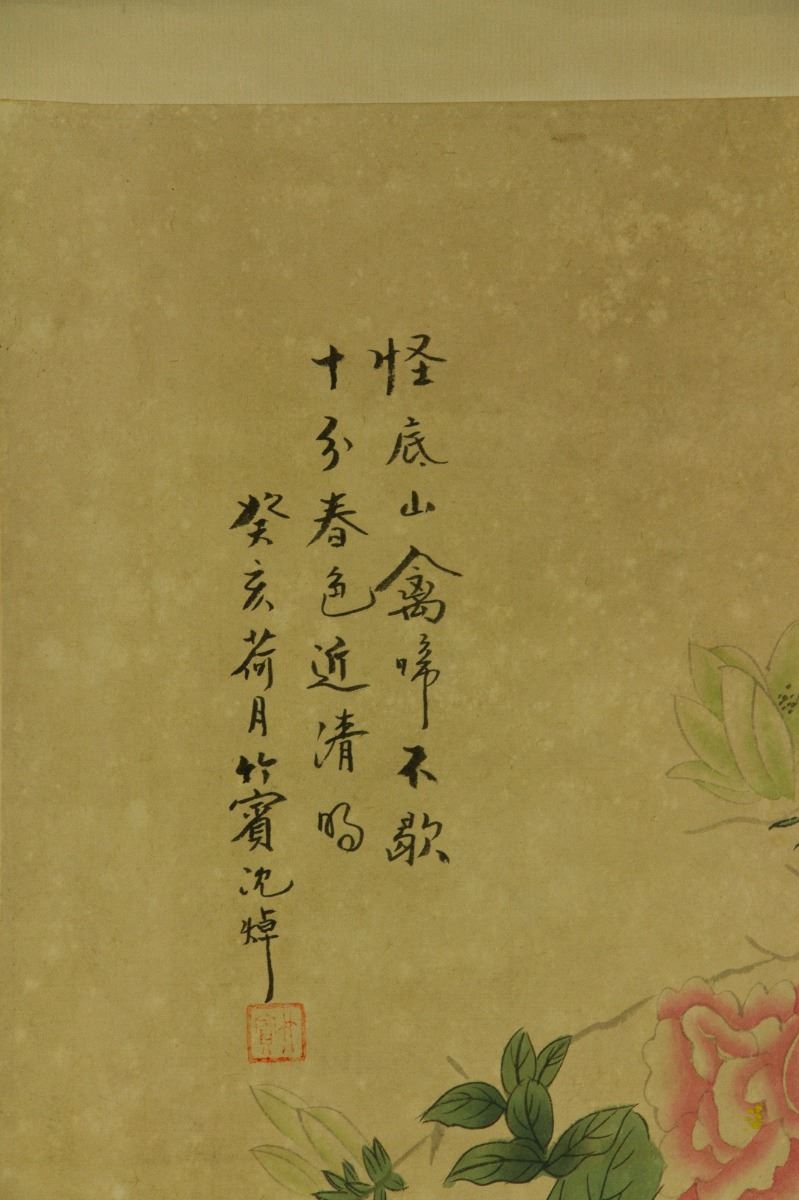 怪底山禽啼不歇
十分春色近清明
癸亥荷月竹賓沈焯
竹賓